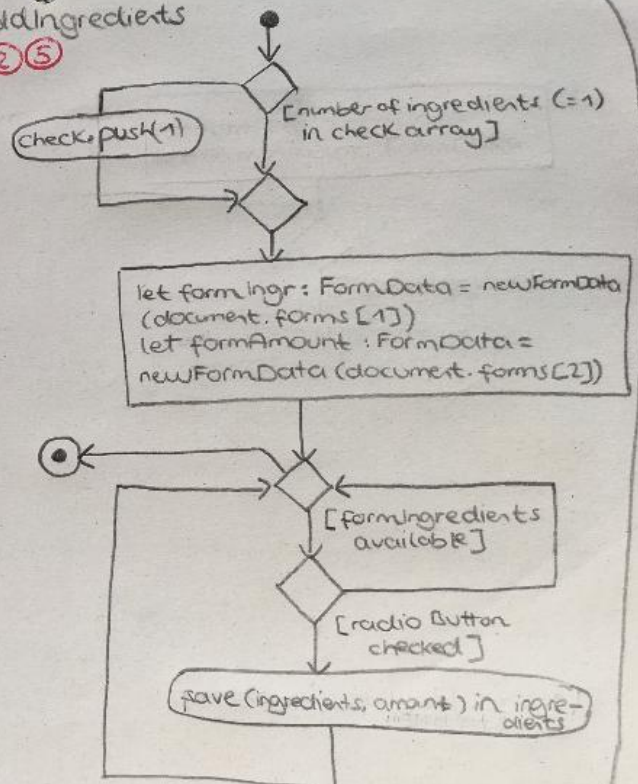 ddIngredients
② ⑤
[number of ingredients (=1)
in check array]
check.push(1)
let formIngr: FormData = newFormData
(document.forms[1])
let formAmount: FormData =
newFormData(document.forms[2])
[formIngredients
available]
[radio Button
checked]
save (ingredients, amount) in ingre-
dients